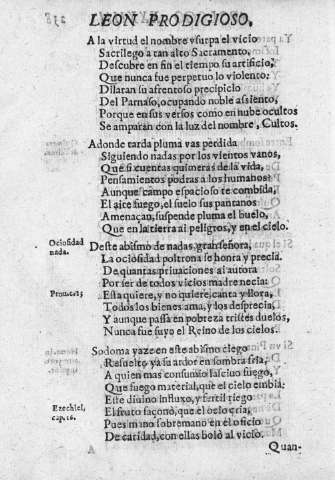 LEON PRODIGIOSO,
A la virtud el nombre vsurpa el vicio
Sacrilego a tan alto Sacramento,
Descubre en fin el tiempo su artificio,
Que nunca fue perpetuo lo violento:
Dilatan su afrentoso precipicio
Del Parnaso, ocupando noble assiento,
Porque en sus versos como en nube ocultos
Se amparan con la luz del nombre, Cultos.
Adonde tarda pluma vas perdida
Siguiendo nadas por los vientos vanos,
Que si cuentas quimeras de la vida,
Pensamientos podràs a los humanos
Aunque campo espacioso te combida,
El aire fuego, el suelo sus pantanos
Amenaçan, suspende pluma el buelo,
Que en la tierra ai peligros, y en el cielo.
Ociosidad
nada.
Deste abismo de nadas gran señora,
La ociosidad poltrona se honra y precia.
De quantas priuaciones al autora
Por ser de todos vicios madre necia:
Prouerb.13
Esta quiere, y no quiere, canta y llora,
Todos los bienes ama, y los desprecia,
Y aunque passa en pobreza tristes duelos,
Nunca fue suyo el Reino de los cielos.
Sodoma yaze en este abismo ciego
Resuelto ya su ardor en sombra fria,
A quien mas consumio lasciuo fuego,
Que fuego material, que el cielo embia:
Este diuino influxo, y fertil riego
Ezechiel,
cap. 16.
El fruto façonò, que el ocio cria,
Pues mano sobre mano en el oficio
De caridad, con ellas bolò al vicio.
Quan-